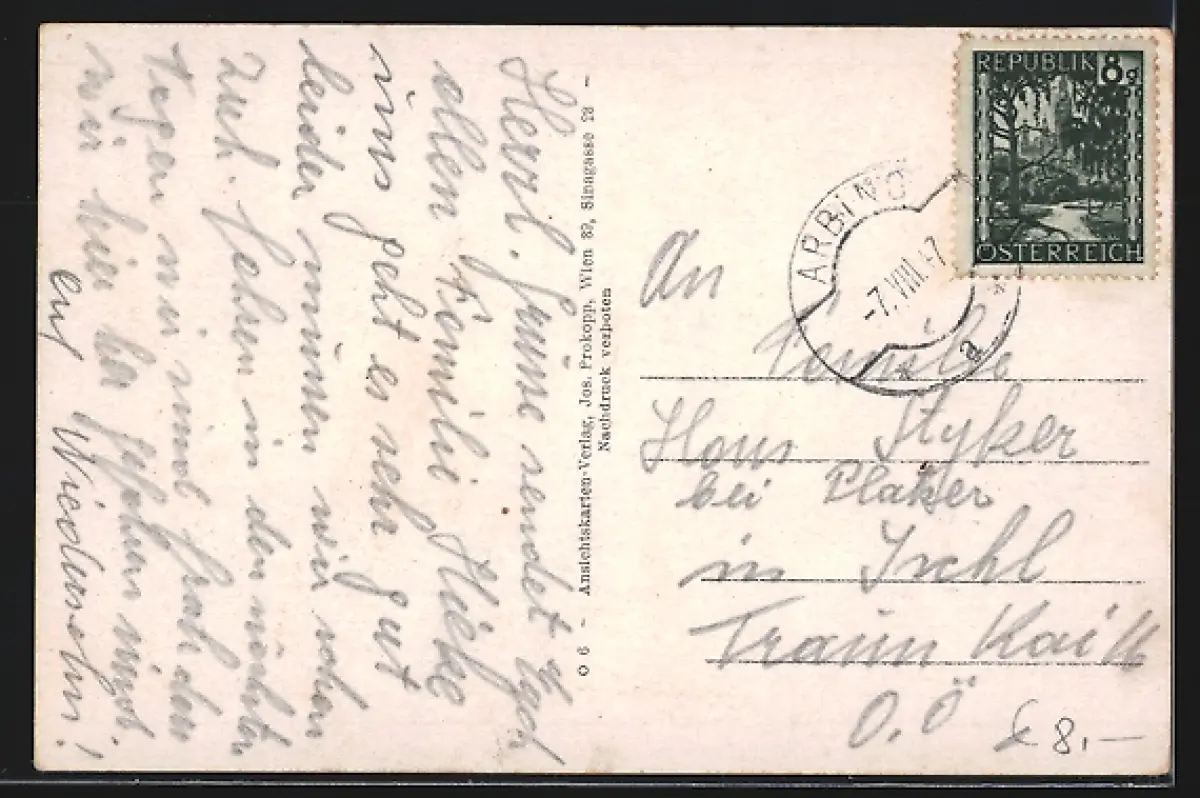 Herzl. Grüße sendet Euch
allen Familie
uns geht es sehr gut
leider müssen wir schon
fahren in den nächsten
Tagen wir sind
wir hier
auf Wiedersehn!
O 6 - Ansichtskarten-Verlag, Jos. Prokopp, Wien 82, Sinagasse 23 -
Nachdruck verboten
REPUBLIK 8g
ÖSTERREICH
ARBING
-7.VIII.47
a
An
Familie
Hans Styker
bei Plaker
in Ischl
Traun Kai
O.Ö
8,-